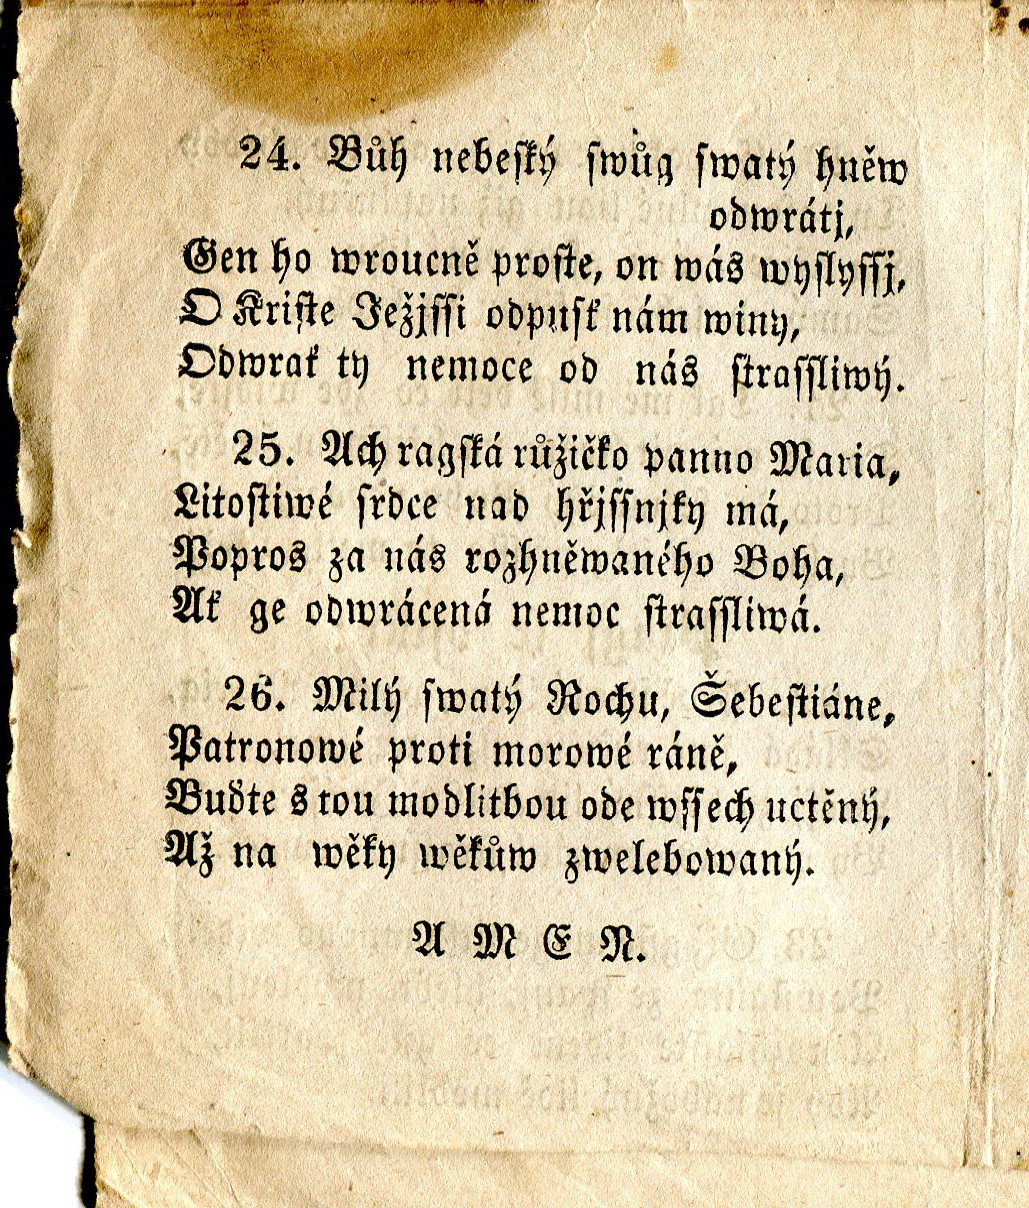 24. Bůh nebeský swůg swatý hněw
odwrátj,
Gen ho wroucně proste, on wás wyslyssj,
O Kriste Ježjssi odpusť nám winy,
Odwrať ty nemoce od nás strassliwý.
25. Ach ragská růžičko panno Maria,
Litostiwé srdce nad hřjssnjky má,
Popros za nás rozhněwaného Boha,
Ať ge odwrácená nemoc strassliwá.
26. Milý swatý Rochu, Šebestiáne,
Patronowé proti morowé ráně,
Buďte s tou modlitbou ode wssech uctěný,
Až na wěky wěkůw zwelebowaný.
A M E N.